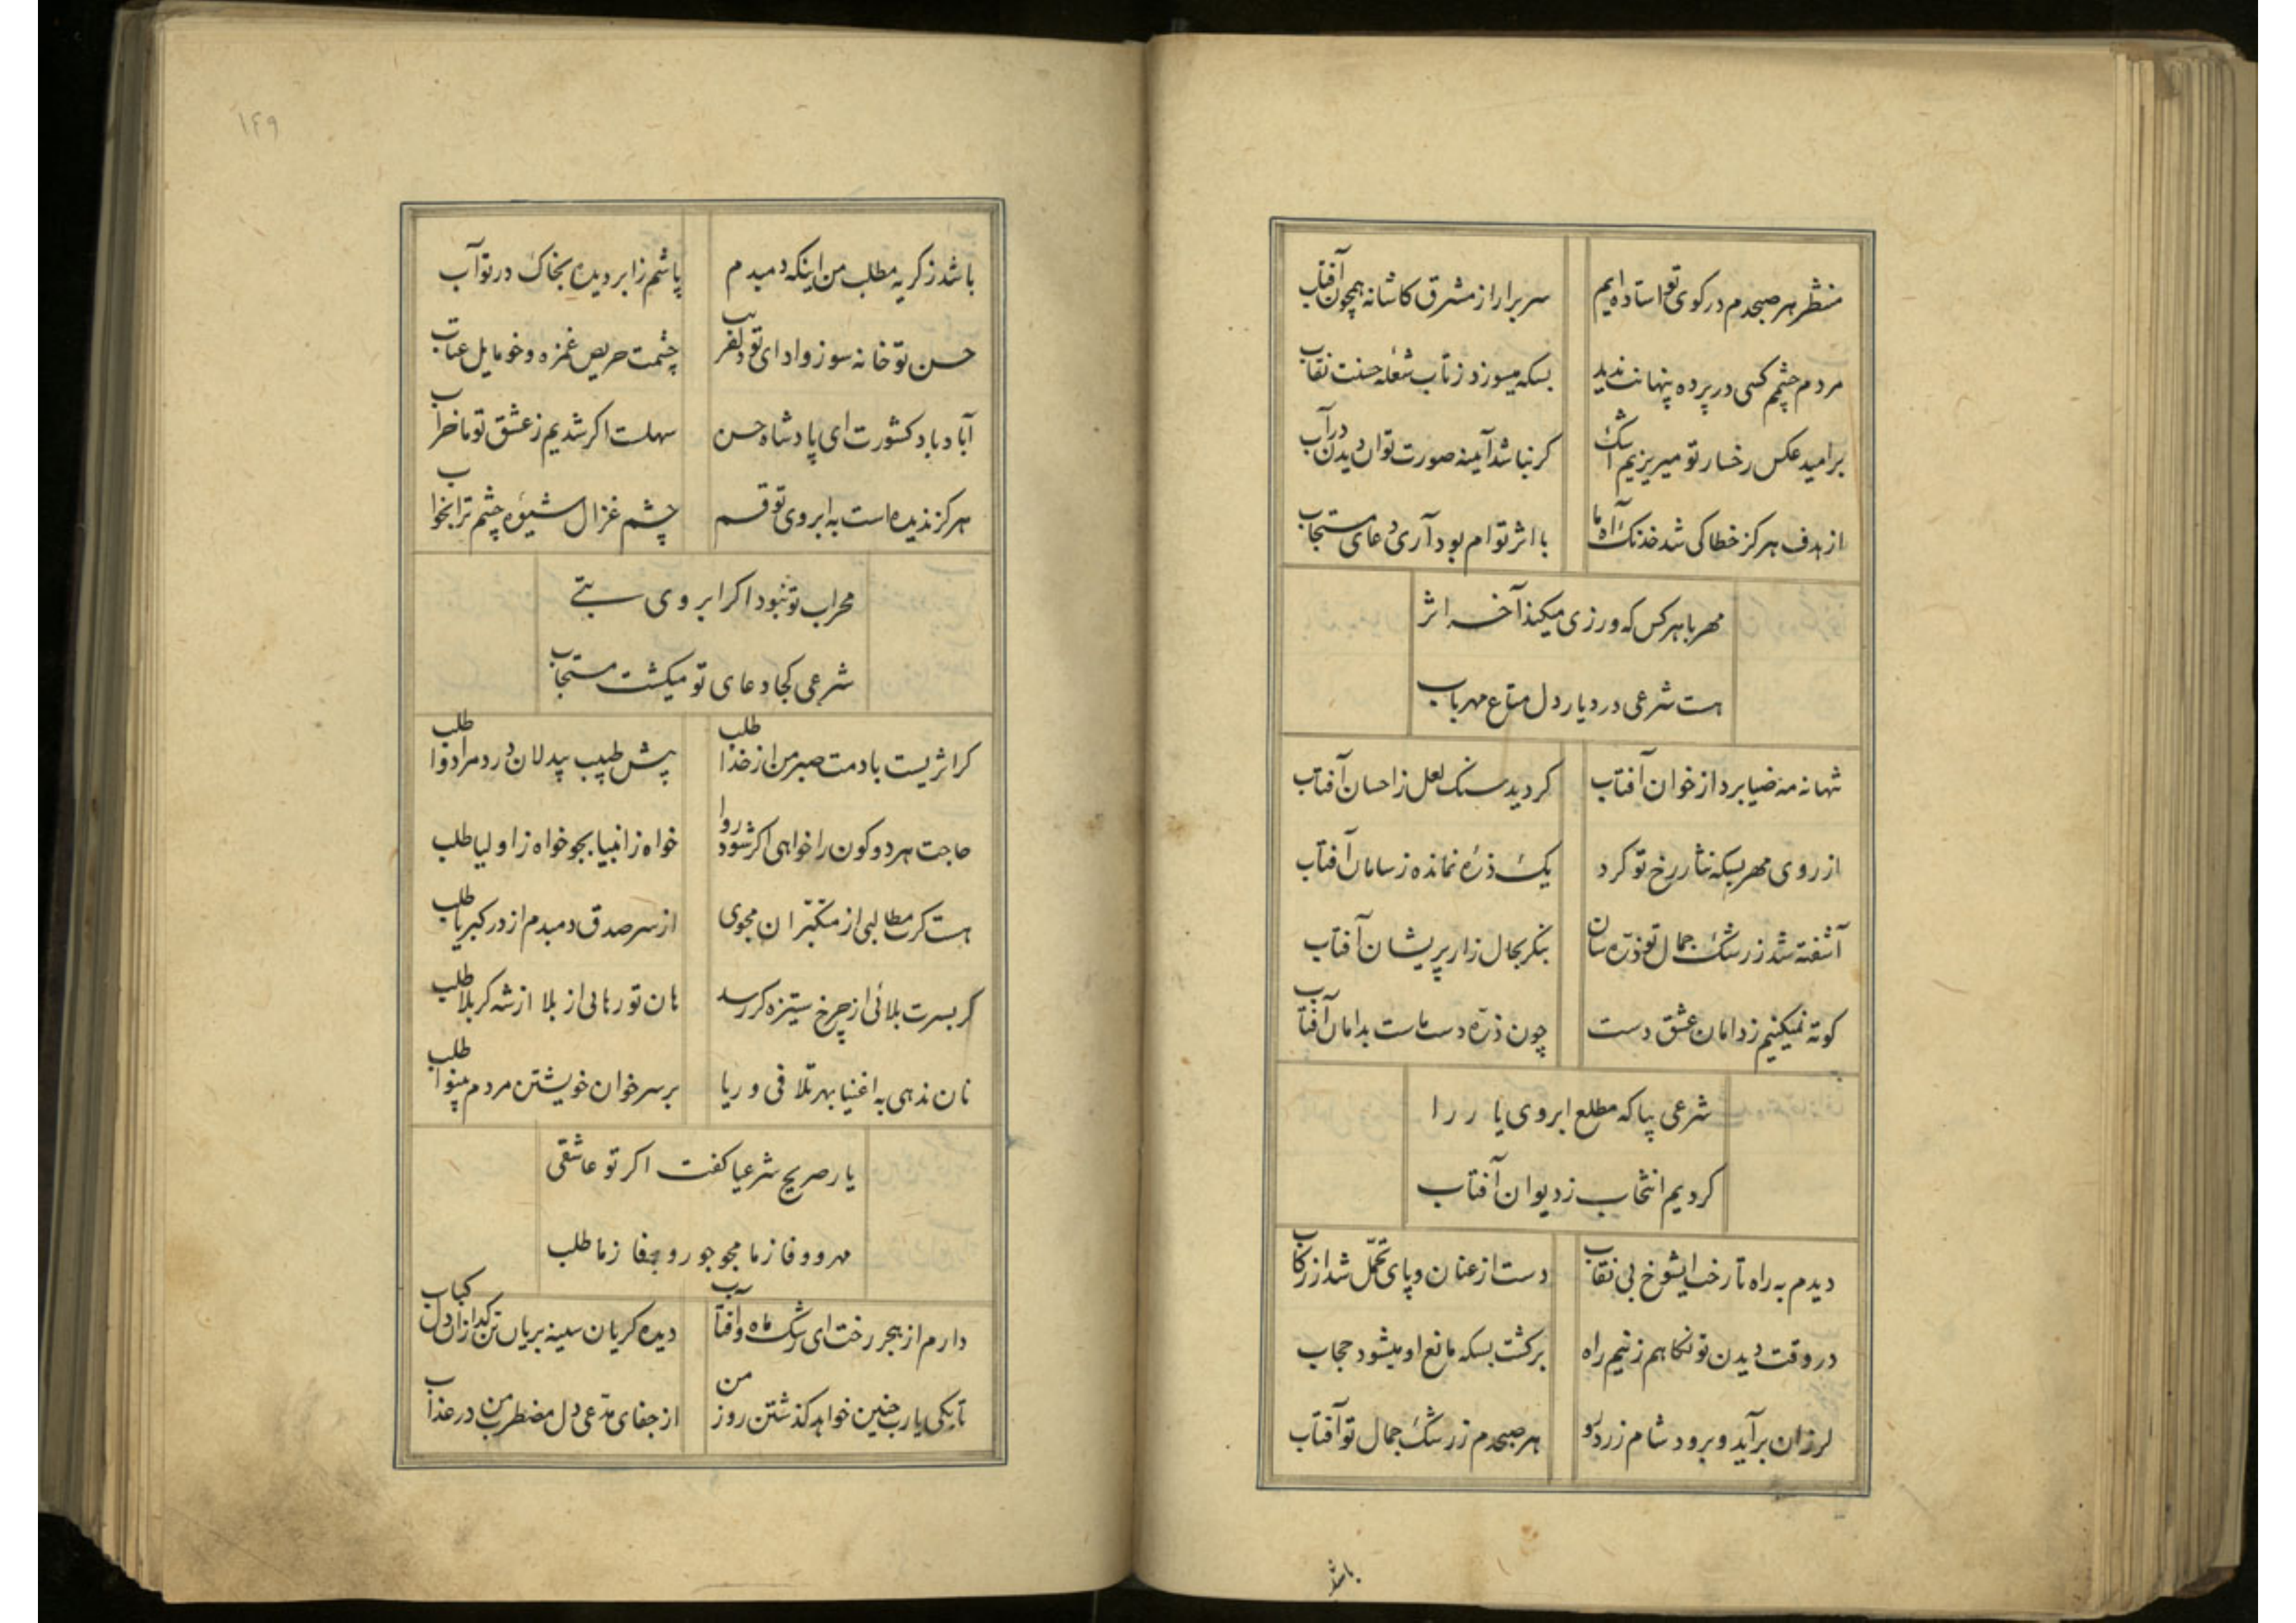 منتظر هر صبحدم در کوی تو استاده ایم سر برار از مشرق کاشانه همچون آفتاب
مردم چشم کسی در پرده پنهانت ندید بسکه میسوزد ز تاب شعله حسنت نقاب
بر امید عکس رخسار تو میریزیم اشک کر نباشد آینه صورت توان دیدن در آب
از هدف هرکز خطا کی شد خدنک آه ما با اثر توام بود آری دعای مستجاب
مهر با هر کس که ورزی میکند آخر اثر
هست شرعی در دیار دل متاع مهر باب
شهانه مه ضیا برد از خوان آفتاب کردید سنک لعل ز احسان آفتاب
از روی مهر بسکه نثار رخ تو کرد یک ذره نمانده ز سامان آفتاب
آشفته شد ز رشک جمال تو ذره سان بنکر بحال زار پریشان آفتاب
کوته نمیکنیم ز دامان عشق دست چون ذره دست ماست بدامان آفتاب
شرعی بیا که مطلع ابروی یار را
کردیم انتخاب ز دیوان آفتاب
دیدم به راه تا رخت ایشوخ بی نقاب دست از عنان و پای تحمل شد از رکاب
در وقت دیدن تو نکاهم ز نیم راه برکشت بسکه مانع او میشود حجاب
لرزان برآید و برود شام زرد رو هر صبحدم ز رشک جمال تو آفتاب
باشد
۱۴۹
باشد ز کریه مطلب من اینکه دمبدم پاشم ز ابر دیده بخاک در تو آب
حسن تو خانه سوز و ادای تو دلفریب چشمت حریص غمزه و خو مایل عتاب
آباد باد کشورت ای پادشاه حسن سهلت اکر شدیم ز عشق تو ما خراب
هرکز ندیده است به ابروی تو قسم چشم غزال شیوه چشم ترا بخواب
محراب تو نبود اکر ابروی بتی
شرعی کجا دعای تو میکشت مستجاب
کر اثریست با دمت صبر من از خدا طلب پیش طبیب بیدلان درد مرا دوا طلب
حاجت هر دو کون را خواهی اکر شود روا خواه ز انبیا بجو خواه ز اولیا طلب
هست کرت مطالبی از متکبران مجوی از سر صدق دمبدم از در کبریا طلب
کر بسرت بلائی از چرخ ستیزه کر رسد هان تو رهائی از بلا از شه کربلا طلب
نان ندهی به اغنیا بهر تلافی و ریا بر سر خوان خویشتن مردم بینوا طلب
یار صریح شرعیا کفت اکر تو عاشقی
مهر و وفا ز ما مجو جور و جفا ز ما طلب
دارم از هجر رخت ای رشک ماه و آفتاب دیده کریان سینه بریان تن کدازان دل کباب
تا بکی یارب چنین خواهد کذشتن روز من از جفای مدعی دل مضطرب من در عذاب